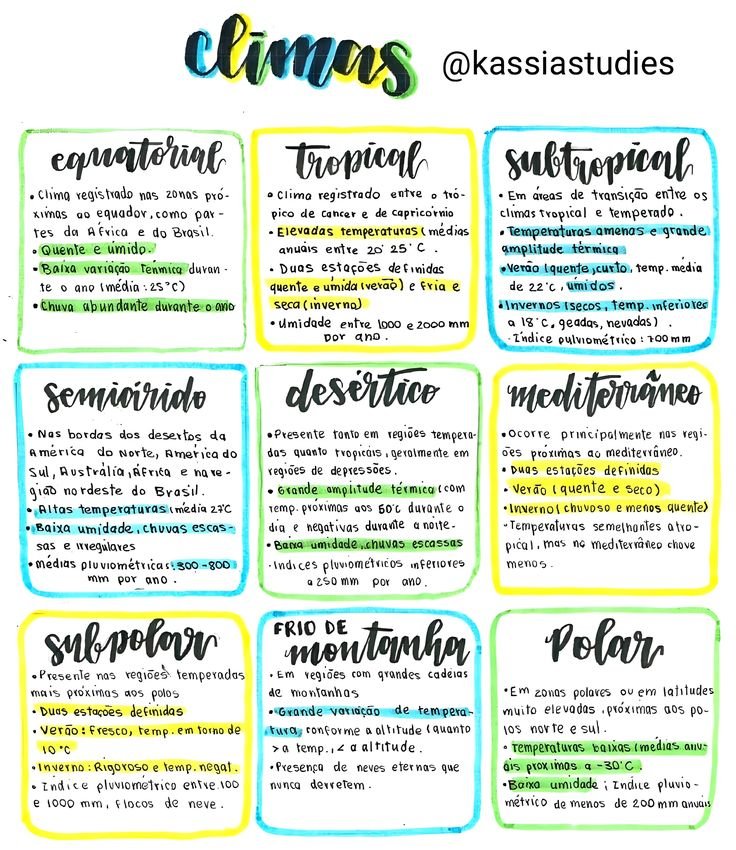 climas @kassiastudies
equatorial
• Clima registrado nas zonas pró-
ximas ao equador, como par-
tes da África e do Brasil.
• Quente e úmido.
• Baixa variação térmica duran-
te o ano (média: 25°C)
• Chuva abundante durante o ano
tropical
• Clima registrado entre o tró-
pico de cancer e de capricórnio
• Elevadas temperaturas (médias
anuais entre 20° 25°C.
• Duas estações definidas
quente e úmida (verão) e fria e
seca (inverno)
• Umidade entre 1000 e 2000 mm
por ano.
subtropical
• Em áreas de transição entre os
climas tropical e temperado.
• Temperaturas amenas e grande
amplitude térmica
• Verão (quente, curto, temp. média
de 22°C, úmidos.
• Invernos (secos, temp. inferiores
a 18°C, geadas, nevadas).
• Índice pulviométrico: 700 mm
semiárido
• Nas bordas dos desertos da
América do Norte, América do
Sul, Austrália, África e na re-
gião nordeste do Brasil.
• Altas temperaturas (média 27°C
• Baixa umidade, chuvas escas-
sas e irregulares
• médias pluviométricas: 300-800
mm por ano.
desértico
• Presente tanto em regiões tempera-
das quanto tropicais, geralmente em
regiões de depressões.
• Grande amplitude térmica (com
temp. próximas aos 50°C durante o
dia e negativas durante a noite.
• Baixa umidade, chuvas escassas
• Indices pluviométricos inferiores
a 250 mm por ano.
mediterrâneo
• Ocorre principalmente nas regi-
ões próximas ao mediterrâneo.
• Duas estações definidas
• Verão (quente e seco)
• Inverno (chuvoso e menos quente)
• Temperaturas semelhantes a tro-
pical, mas no mediterrâneo chove
menos.
subpolar
• Presente nas regiões temperadas
mais próximas aos polos
• Duas estações definidas
• Verão: Fresco, temp. em torno de
10°C
• Inverno: Rigoroso e temp. negat.
• Indice pluviométrico entre 100
e 1000 mm, flocos de neve.
FRIO DE
montanha
• Em regiões com grandes cadeias
de montanhas
• Grande variação de tempera-
tura, conforme a altitude (quanto
> a temp., < a altitude.
• Presença de neves eternas que
nunca derretem.
Polar
• Em zonas polares ou em latitudes
muito elevadas, próximas aos po-
los norte e sul.
• Temperaturas baixas (médias anu-
ais proximas a -30°C.
• Baixa umidade; Indice pluvio-
métrico de menos de 200 mm anuais